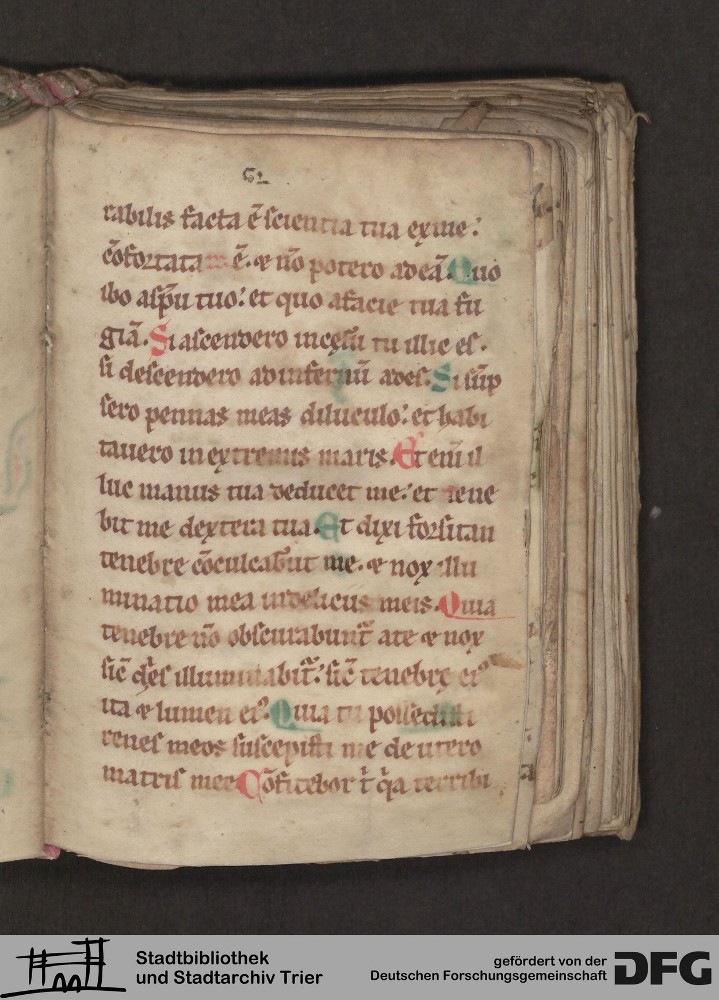 61
rabilis facta ē scientia tua ex me:
cōfortata ē. ⁊ nō potero ad eā. Quo
ibo a sp̄u tuo: et quo a facie tua fu
giā. Si ascendero in cęlū tu illic es.
si descendero ad infernū ades. Si sūp
sero pennas meas diluculo: et habi
tauero in extremis maris. Et eni il
luc manus tua deducet me: et tene
bit me dextera tua. Et dixi forsitan
tenebre cōculcab̄unt me. ⁊ nox illu
minatio mea in delicus meis. Quia
tenebre nō obscurabunt̄ a te ⁊ nox
sic̄ dies illuminabit̄: sic̄ tenebrę ei᾽
ita ⁊ lumen ei᾽. Quia tu possedisti
renes meos suscepisti me de utero
matris mee Cōfitebor t̄ q̄a terribi
Stadtbibliothek
und Stadtarchiv Trier
gefördert von der
Deutschen Forschungsgemeinschaft
DFG